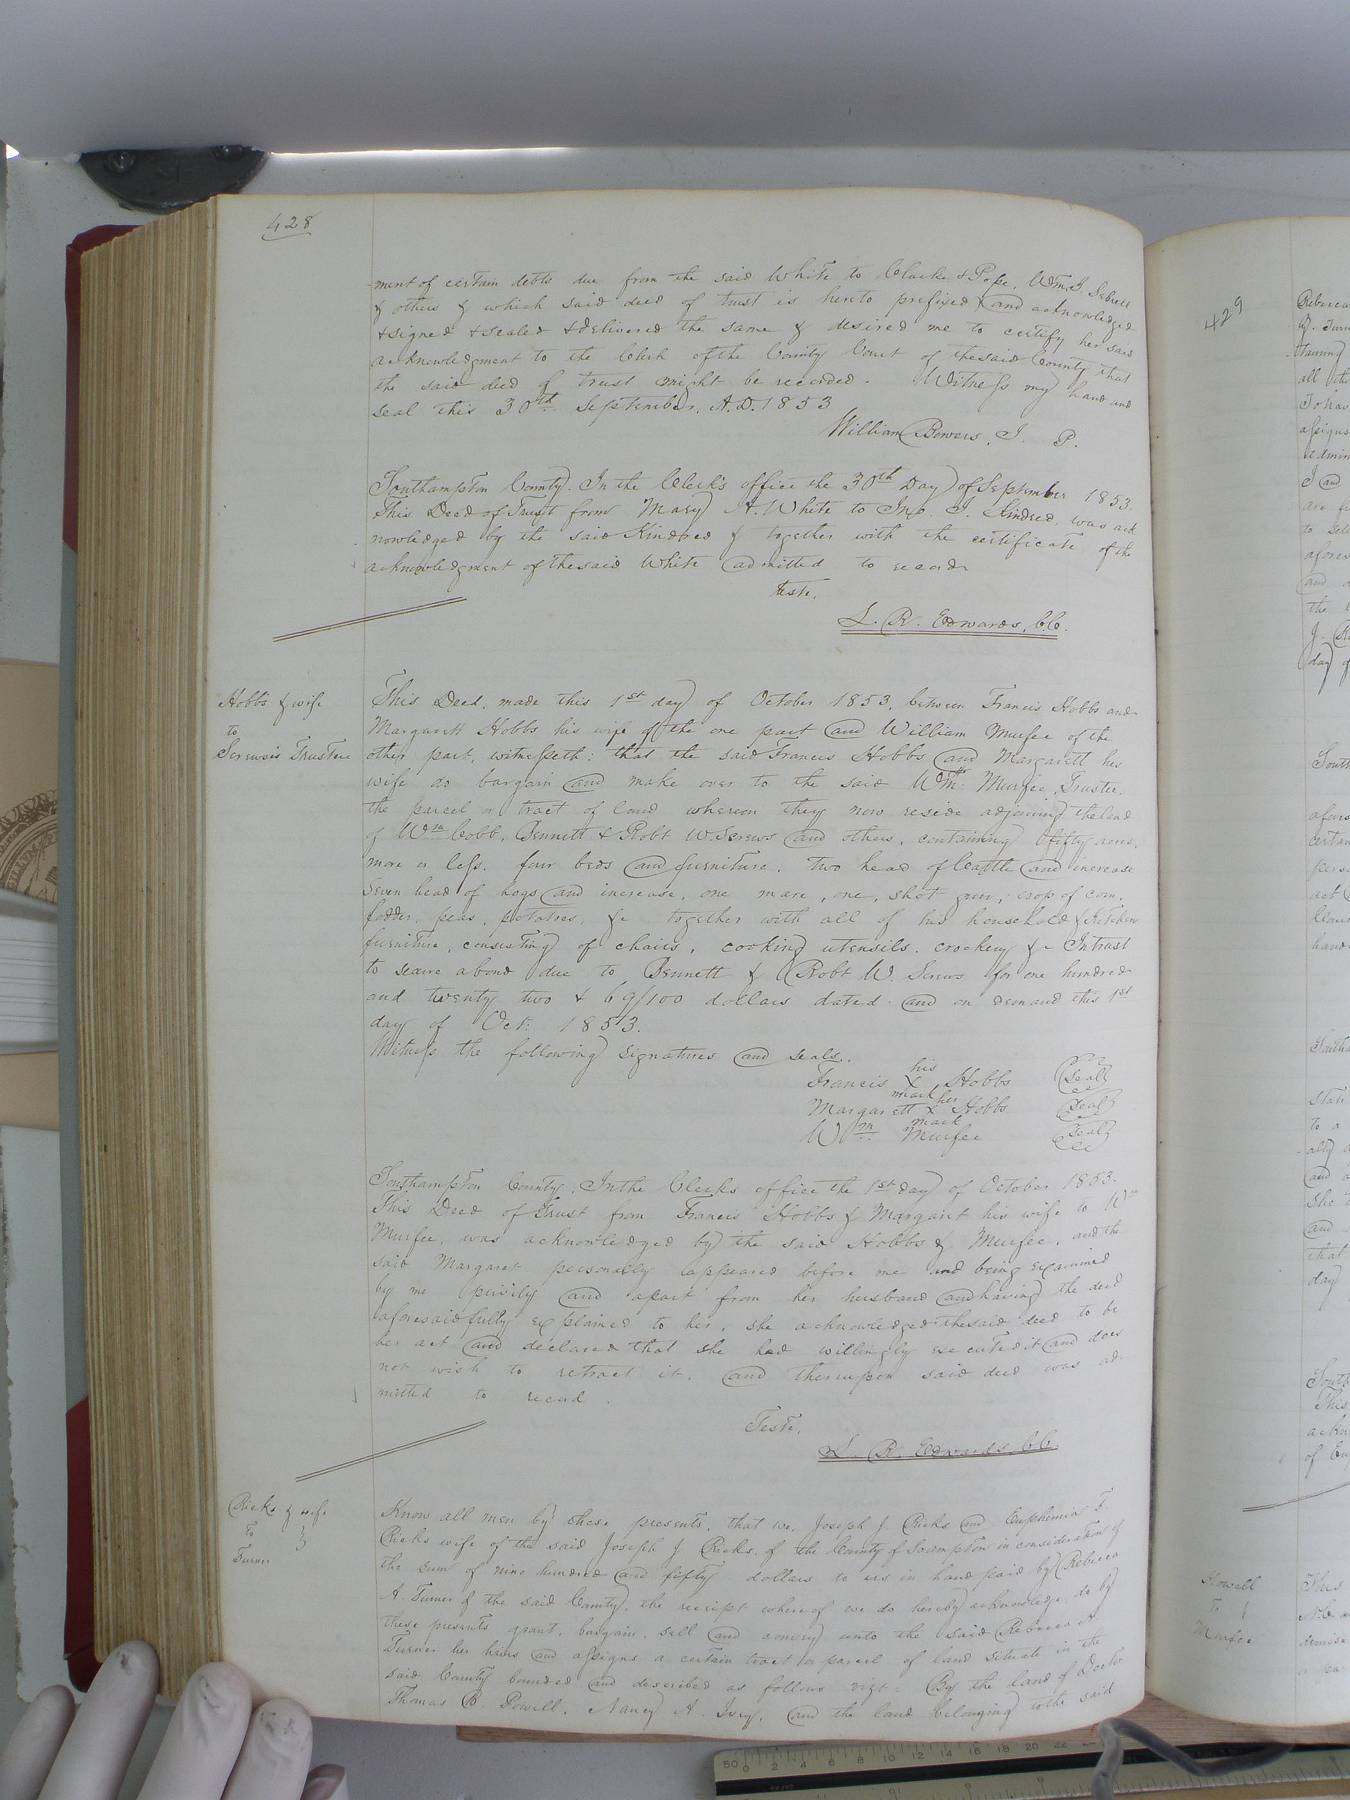 428
ment of certain debts due from the said White to Clarke & Pope, Wm. J. Sebrell
& others & which said deed of trust is hereto prefixed and acknowledged
& signed & sealed & delivered the same & desired me to certify her said
acknowledgment to the Clerk of the County Court of the said County that
the said deed of trust might be recorded. Witness my hand and
seal this 30th September, A.D. 1853
William Bowers, J. P.
Southampton County. In the Clerk's office the 30th Day of September 1853.
This Deed of Trust from Mary A. White to Jno. J. Kindred, was ack
nowledged by the said Kindred & together with the certificate of the
acknowledgment of the said White admitted to record
Teste,
L. R. Edwards, C.C.
Hobbs & wife
to
Screws's Trustee
This Deed, made this 1st day of October 1853, between Francis Hobbs and
Margarett Hobbs his wife of the one part and William Murfee of the
other part, witnesseth: that the said Francis Hobbs and Margarett his
wife do bargain and make over to the said Wm. Murfee, Trustee,
the parcel or tract of land whereon they now reside adjoining the land
of Wm Cobb, Bennett & Robt W. Screws and others, containing fifty acres,
more or less. four beds and furniture, two head of Cattle and increase
seven head of hogs and increase, one mare, one, shot gun, crop of corn,
fodder, peas, potatoes, &c together with all of his household & Kitchen
furniture, consisting of chairs, cooking utensils, crockery &c In trust
to secure a bond due to Bennett & Robt W. Screws for one hundred
and twenty two & 69/100 dollars dated and on demand this 1st
day of Oct: 1853.
Witness the following signatures and seals.
Francis his X mark Hobbs Seal
Margarett her X mark Hobbs Seal
Wm Murfee Seal
Southampton County, In the Clerks office the 1st day of October 1853.
This Deed of Trust from Francis Hobbs & Margaret his wife to Wm
Murfee, was acknowledged by the said Hobbs & Murfee, and the
said Margaret personally appeared before me and being examined
by me privily and apart from her husband and having the deed
aforesaid fully explained to her, she acknowledged the said deed to be
her act and declared that she had willingly executed it and does
not wish to retract it. and thereupon said deed was ad
mitted to record.
Teste,
L. R. Edwards, C.C.
Ricks & wife
to
Turner
Know all men by these presents, that we, Joseph J. Ricks and Euphemia F.
Ricks wife of the said Joseph J Ricks, of the County of Soampton in consideration of
the sum of nine hundred and fifty dollars to us in hand paid by Rebecca
A Turner of the said County, the receipt whereof we do hereby acknowledge, do by
these presents grant, bargain, sell and convey unto the said Rebecca A
Turner her heirs and assigns a certain tract or parcel of land situate in the
said County bounded and described as follows vizt: By the land of Doctr
Thomas B. Powell, Nancy A. Ivey, and the land belonging to the said
429
Howell
To
Murfee